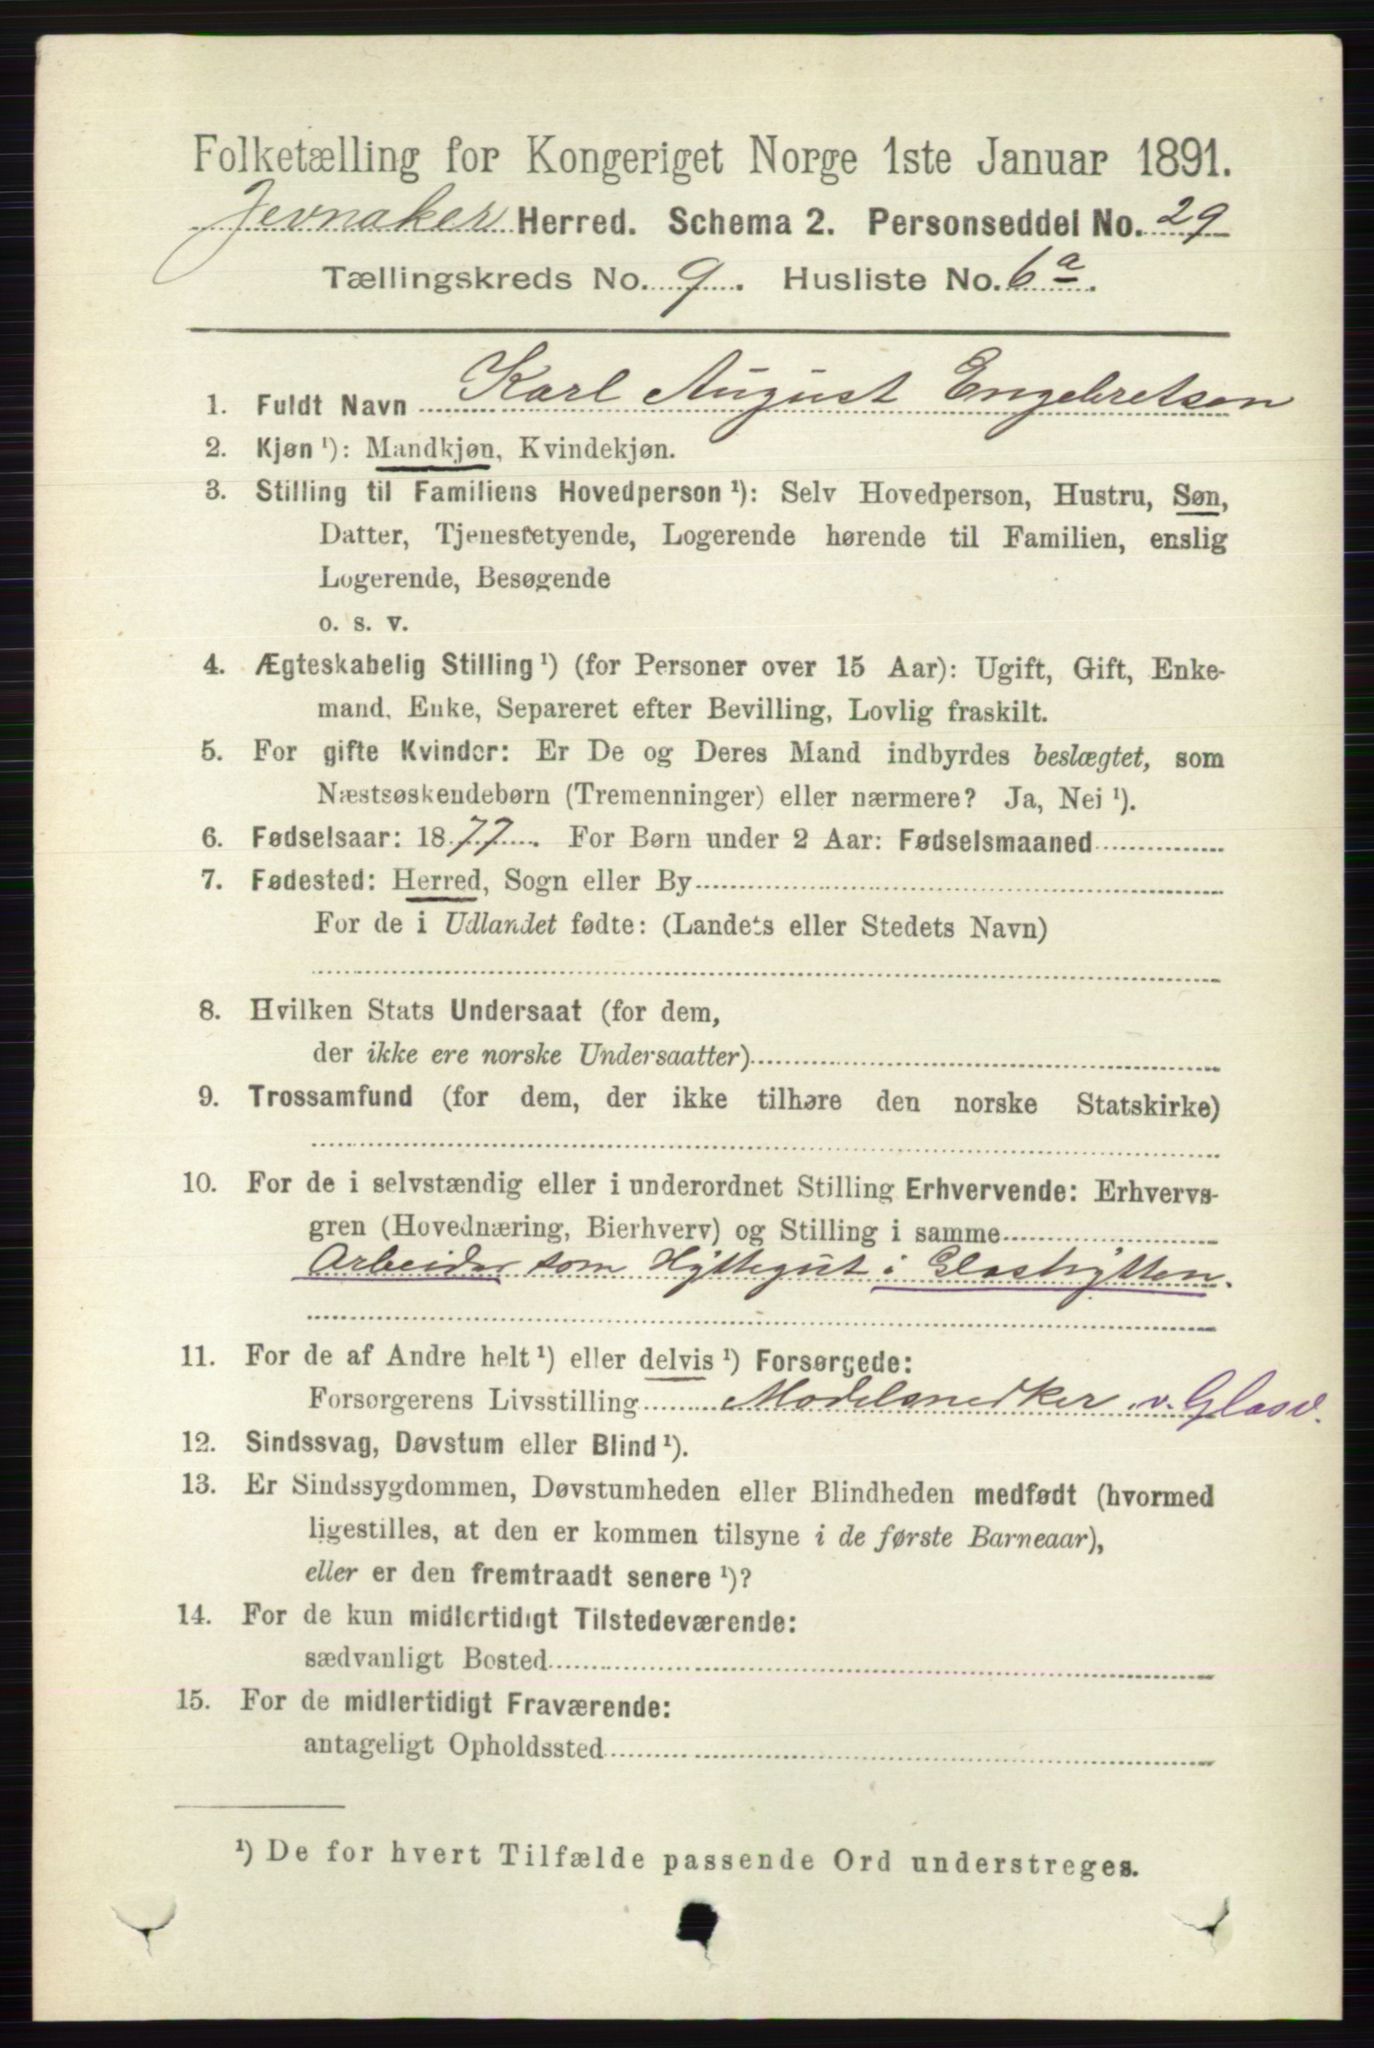 Folketælling for Kongeriget Norge 1ste Januar 1891.
Jevnaker Herred. Schema 2. Personseddel No. 29
Tællingskreds No. 9. Husliste No. 6a.
1. Fuldt Navn Karl August Engebretsen
2. Kjøn ¹): Mandkjøn, Kvindekjøn.
3. Stilling til Familiens Hovedperson ¹): Selv Hovedperson, Hustru, Søn,
Datter, Tjenestetyende, Logerende hørende til Familien, enslig
Logerende, Besøgende
o. s. v.
4. Ægteskabelig Stilling ¹) (for Personer over 15 Aar): Ugift, Gift, Enke-
mand, Enke, Separeret efter Bevilling, Lovlig fraskilt.
5. For gifte Kvinder: Er De og Deres Mand indbyrdes beslægtet, som
Næstsøskendebørn (Tremenninger) eller nærmere? Ja, Nei ¹).
6. Fødselsaar: 1877. For Børn under 2 Aar: Fødselsmaaned
7. Fødested: Herred, Sogn eller By
For de i Udlandet fødte: (Landets eller Stedets Navn)
8. Hvilken Stats Undersaat (for dem,
der ikke ere norske Undersaatter)
9. Trossamfund (for dem, der ikke tilhøre den norske Statskirke)
10. For de i selvstændig eller i underordnet Stilling Erhvervende: Erhvervs-
gren (Hovednæring, Bierhverv) og Stilling i samme
Arbeider som Hyttegut i Glashytten.
11. For de af Andre helt ¹) eller delvis ¹) Forsørgede:
Forsørgerens Livsstilling Modelsnedker v. Glasv.
12. Sindssvag, Døvstum eller Blind ¹).
13. Er Sindssygdommen, Døvstumheden eller Blindheden medfødt (hvormed
ligestilles, at den er kommen tilsyne i de første Barneaar),
eller er den fremtraadt senere ¹)?
14. For de kun midlertidigt Tilstedeværende:
sædvanligt Bosted
15. For de midlertidigt Fraværende:
antageligt Opholdssted
¹) De for hvert Tilfælde passende Ord understreges.